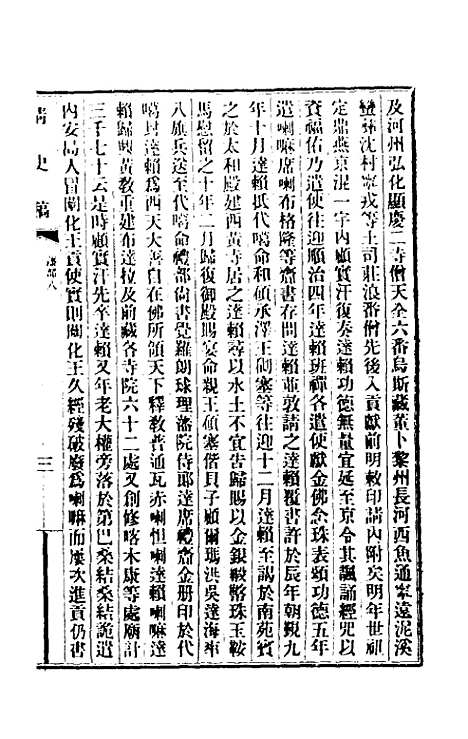 及河州弘化顯慶二寺僧天全六番烏斯藏董卜黎州長河西魚通寧遠泥溪
蠻彝沈村寧戎等土司莊浪番僧先後入貢獻前明敕印請內附矣明年世祖
定鼎燕京混一宇內顧實汗復奏達賴功德無量宜延至京令其諷誦經咒以
資福佑乃遣使往迎順治四年達賴班禪各遣使獻金佛念珠表頌功德五年
遣喇嘛席喇布格隆等齎書存問達賴並敦請之達賴覆書許於辰年朝覲九
年十月達賴抵代噶命和碩承澤王碩塞等往迎十二月達賴至謁於南苑賓
之於太和殿建西黃寺居之達賴尋以水土不宜告歸賜以金銀緞幣珠玉鞍
馬慰留之十年二月歸復御殿賜宴命親王碩塞偕貝子顧爾瑪洪吳達海率
八旗兵送至代噶命禮部尚書覺羅朗球理藩院侍郎達席禮齎金册印於代
噶封達賴為西天大善自在佛所領天下釋教普通瓦赤喇怛喇達賴喇嘛達
賴歸興黃教重建布達拉及前藏各寺院六十二處又創修喀木康等處廟計
三千七十云是時顧實汗先卒達賴又年老大權旁落於第巴桑結桑結詭遣
內安島人冒闡化王貢使實則闡化王久經殘破廢為喇嘛而屢次進貢仍書
清史稿
藩部八
三